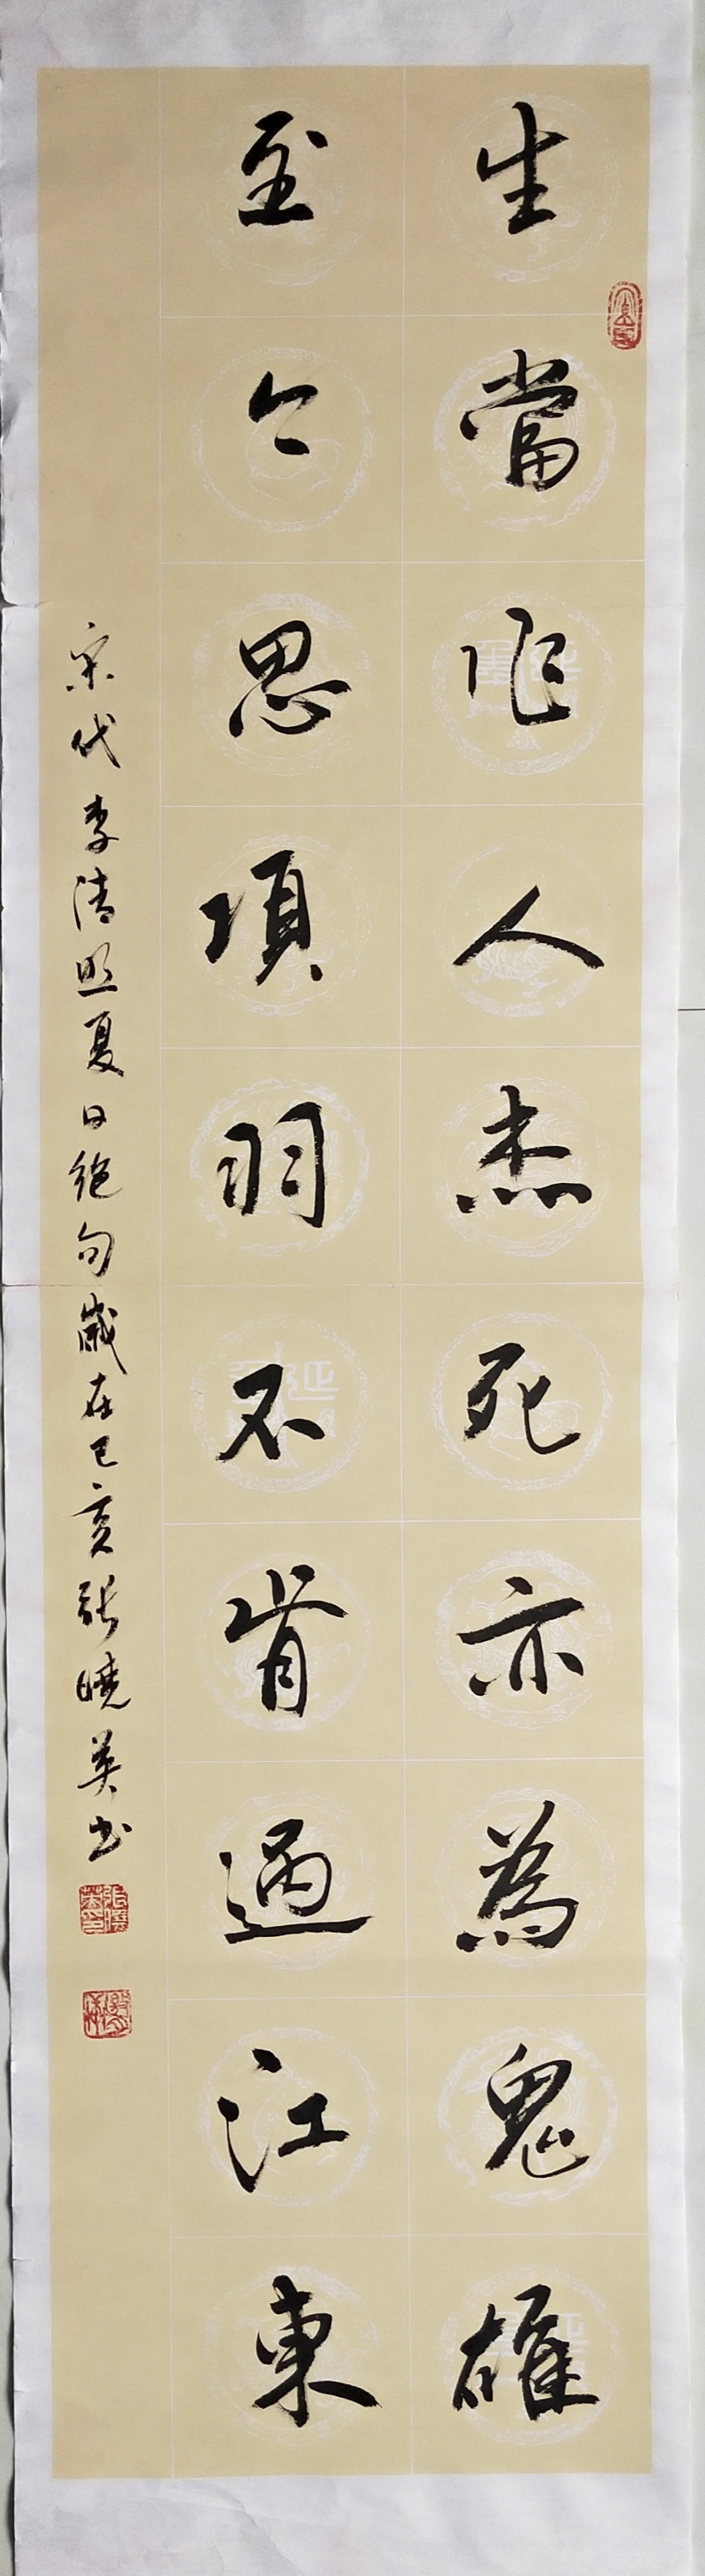 生當作人杰死亦為鬼雄
至今思項羽不肯過江東
宋代李清照夏日絕句歲在己亥張曉英書